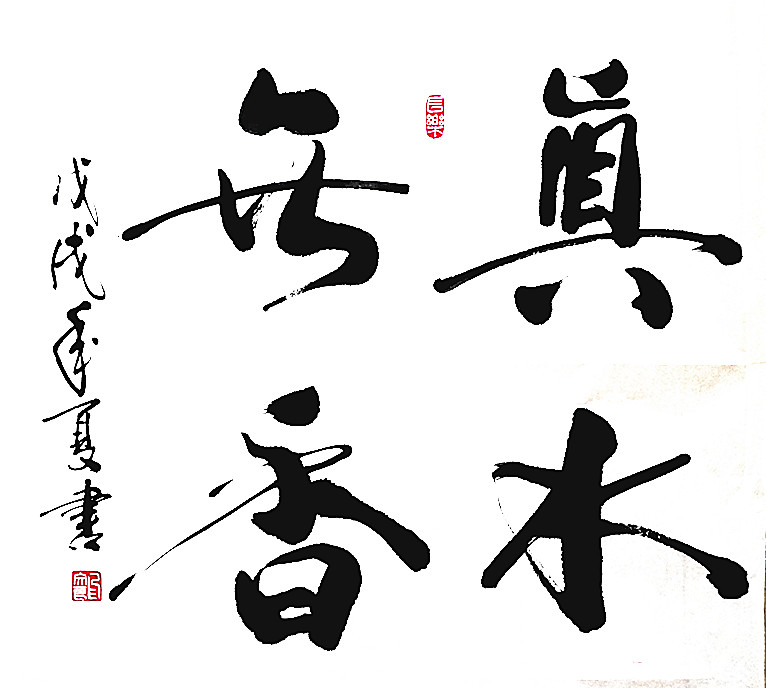 眞水
無香
戊戌年夏書